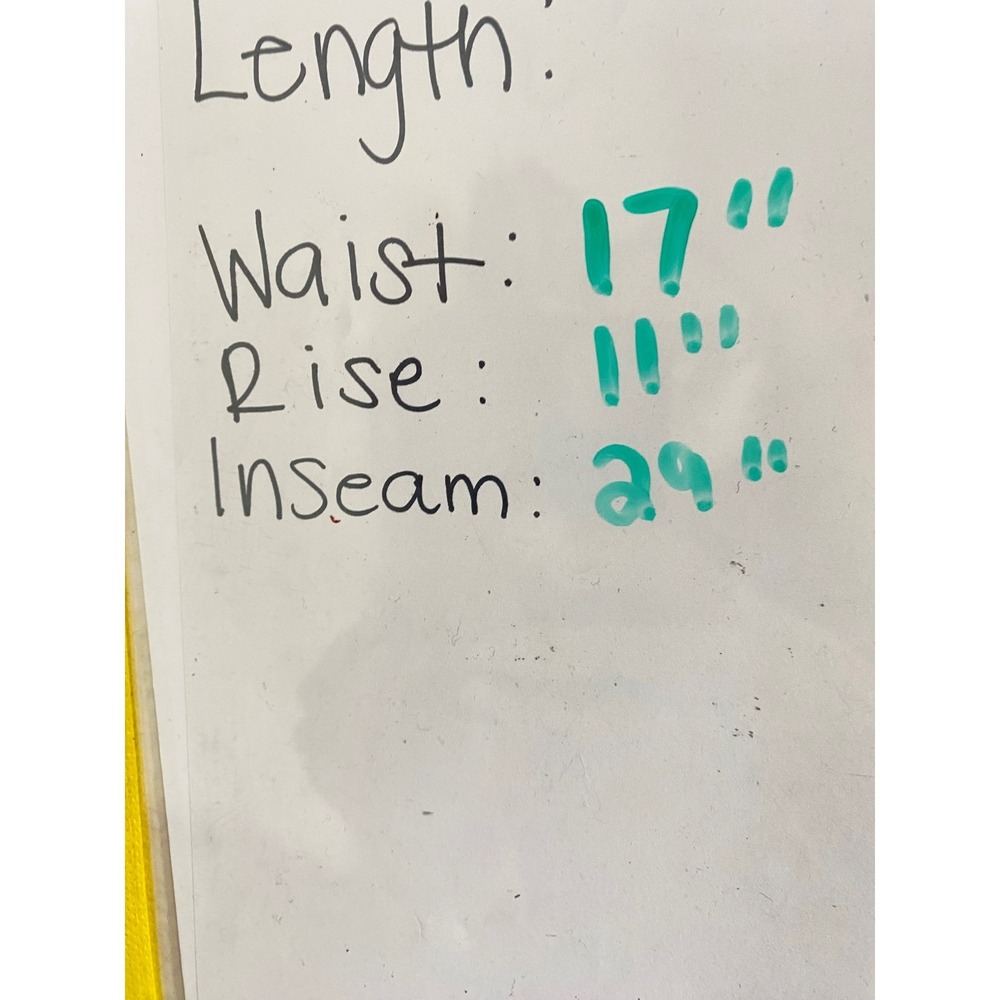 Length:
Waist: 17"
Rise: 11"
Inseam: 29"